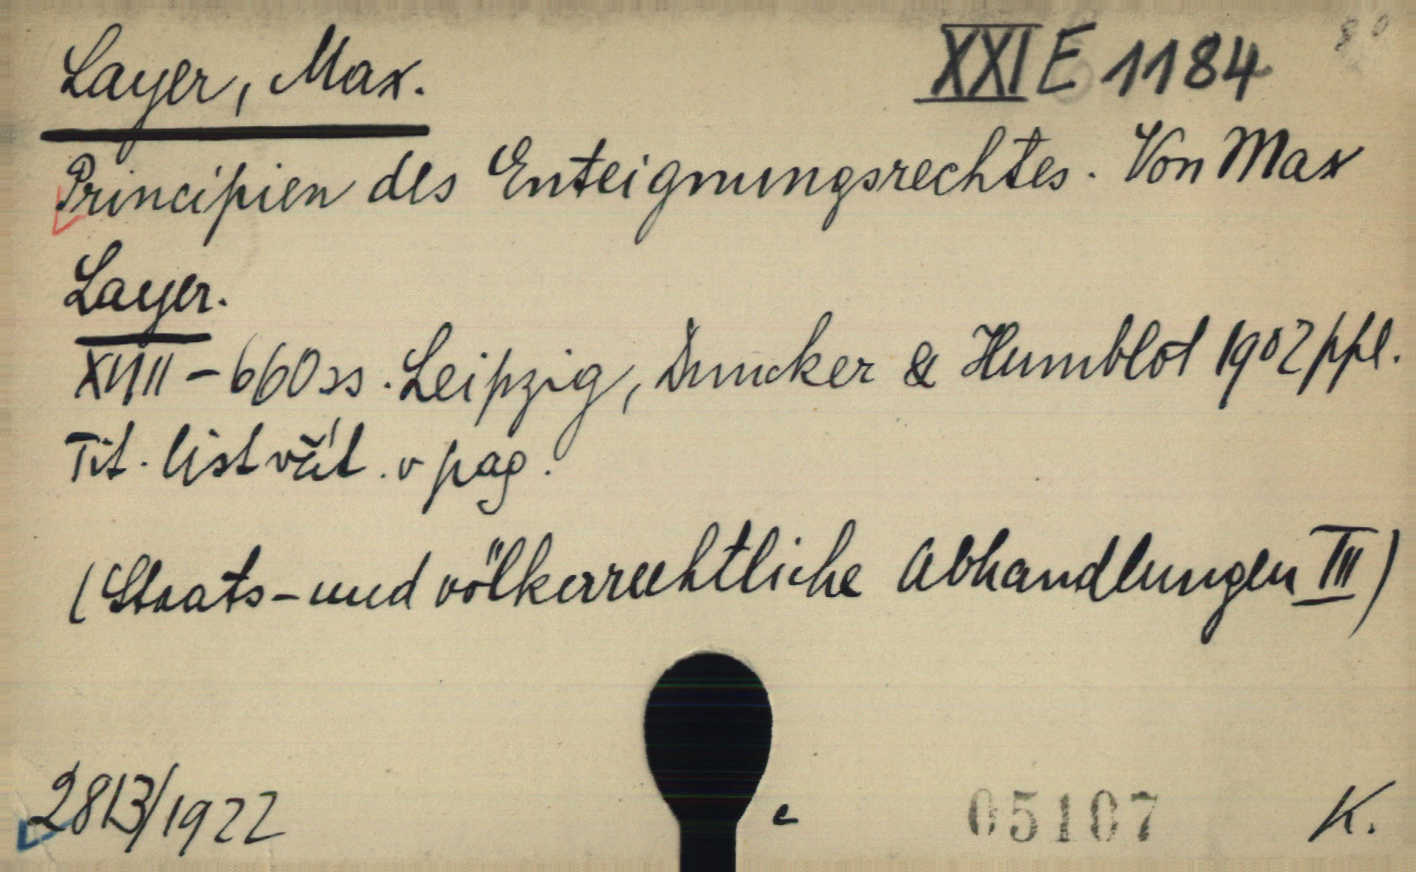 Layer, Max. XXI E 1184 8°
Principien des Enteignungsrechtes. Von Max
Layer.
XVIII - 660 ss. Leipzig, Duncker & Humblot 1902 ppl.
Tit. list včít. v pag.
(Staats- und völkerrechtliche Abhandlungen III)
2813/1922 c 05107 K.